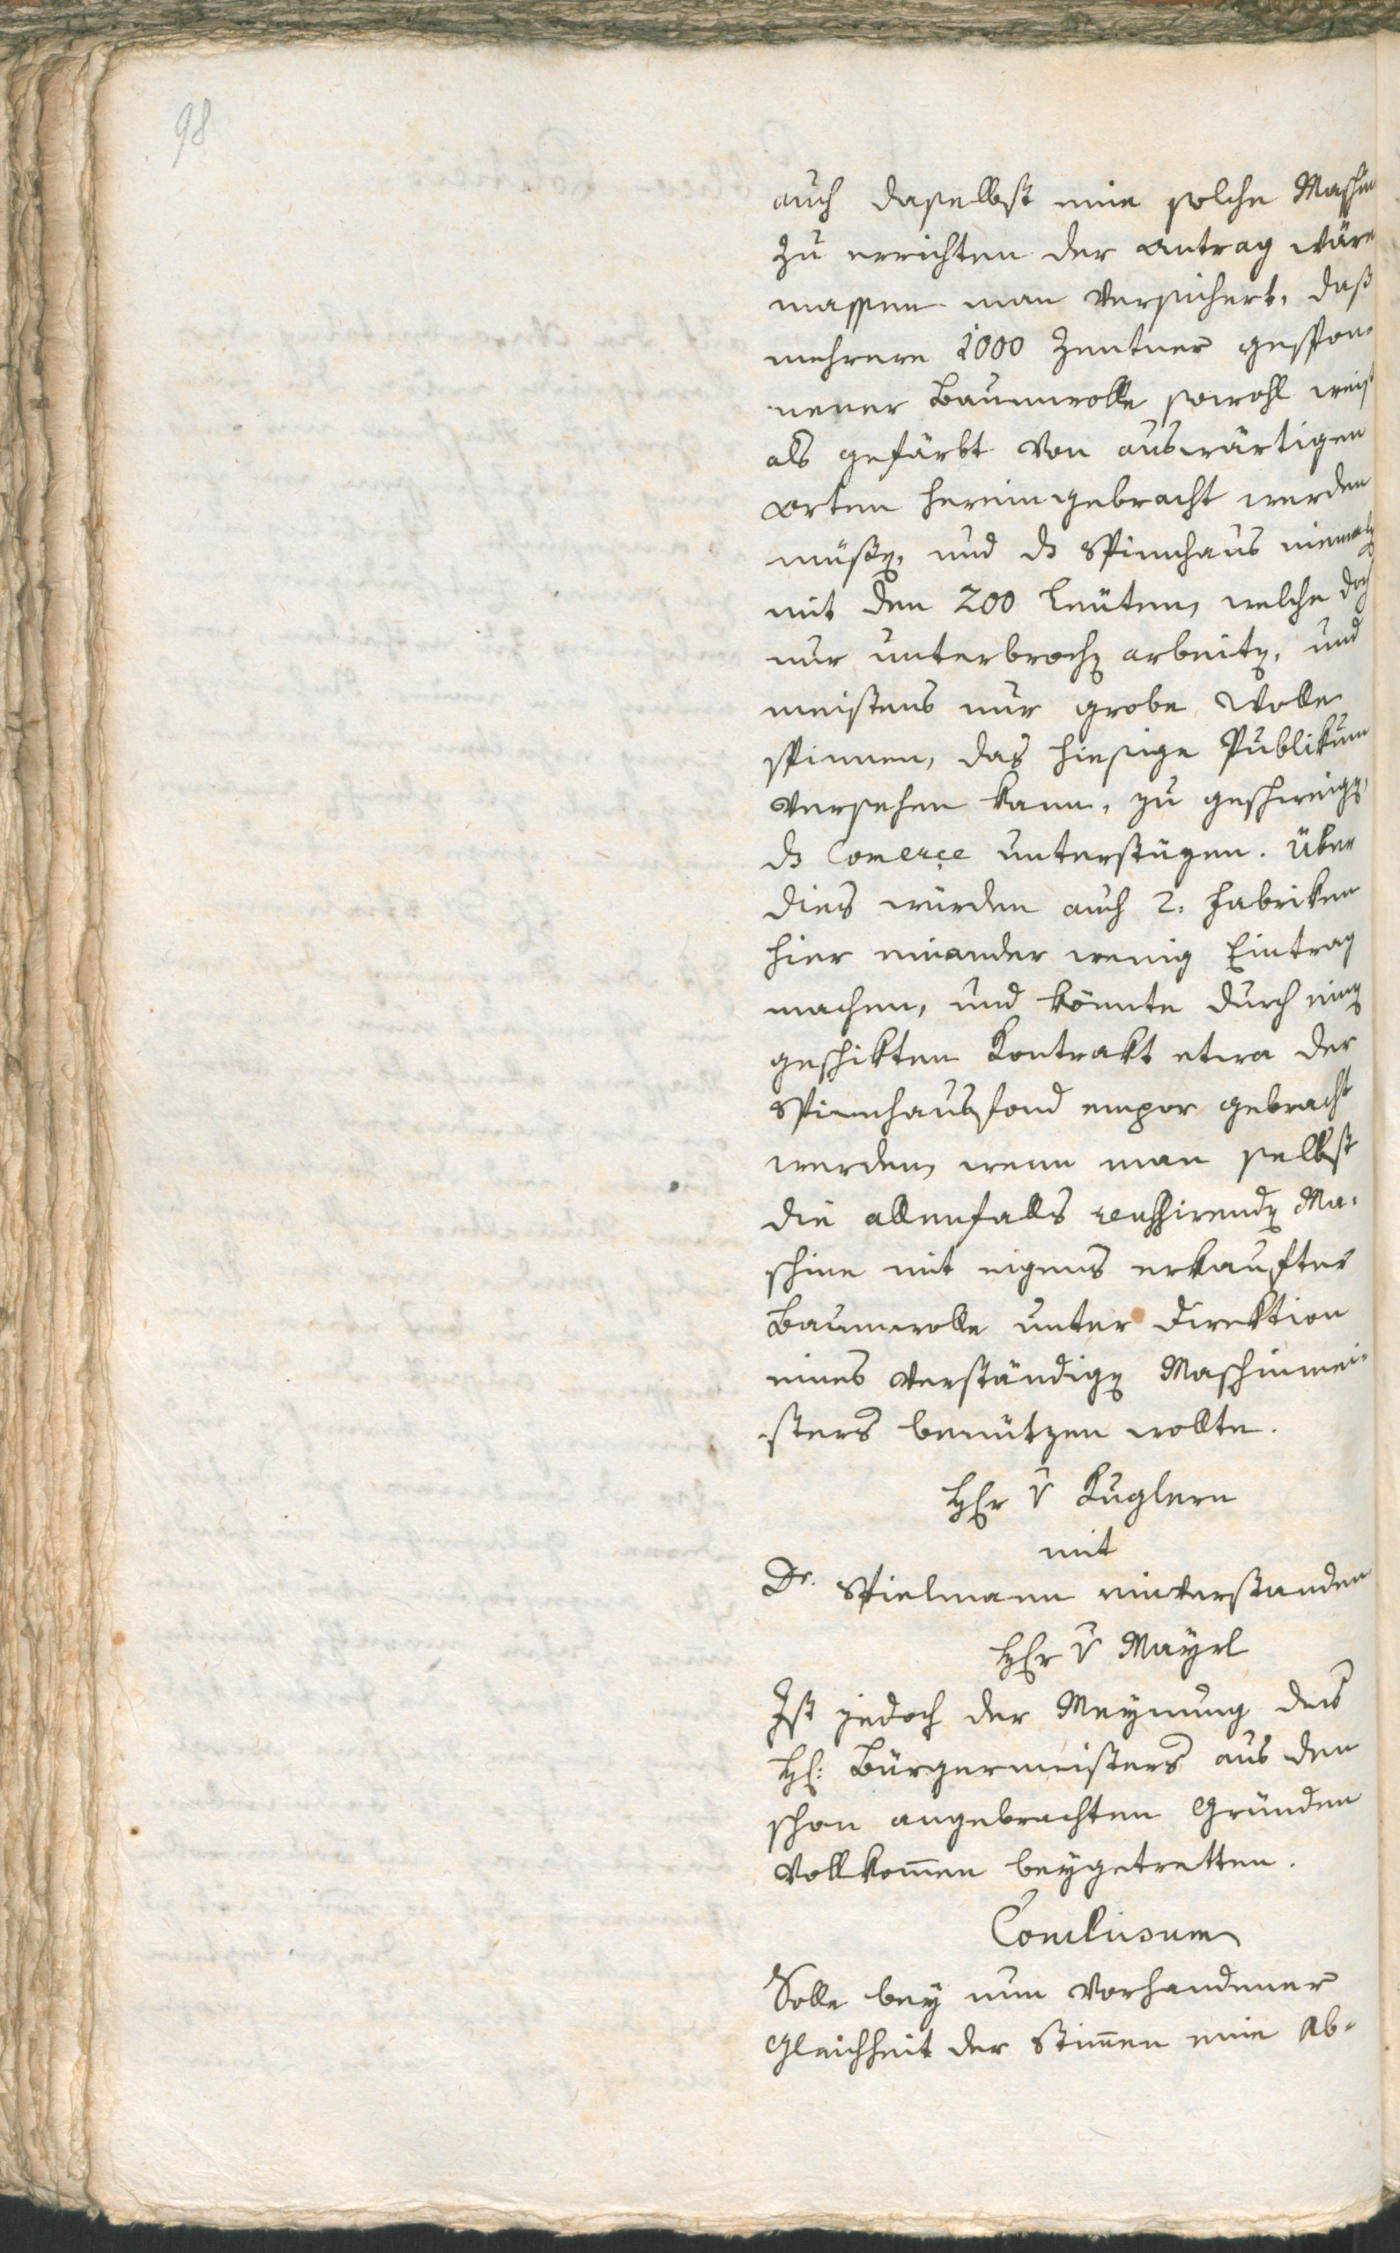 98
auch daselbst eine solche Maschin
zu errichten der Antrag wäre
massen man versichert, daß
mehrere 1000 Zentner gespon-
nener Baumwolle sowohl weis
als gefärbt von auswärtigen
Orten hereingebracht werden
müßen, und ds Spinnhaus niemals
mit den 200 Leüten, welche doch
nur unterbrochen arbeiten, und
meistens nur grobe Wolle
spinnen, das hiesige Publikum
versehen kann, zu geschweigen,
ds Comerçe unterstüzen. Über
dies würden auch 2. Fabriken
hier einander wenig Eintrag
machen, und könnte durch einen
geschikten Kontrakt etwa der
Spinnhausfond empor gebracht
werden, wenn man selbst
die allenfalls reussirende Ma-
schine mit eigens erkaufter
Baumwolle unter Direktion
eines verständigen Maschinmei-
sters benützen wollte.
HEr v Kuglern
mit
Dr. Spielmann einverstanden
HEr v Mayrl
Ist jedoch der Meynung des
H: Bürgermeisters aus den
schon angebrachten Gründen
vollkom̄en beygetretten.
Conclusum
Solle bey nun vorhandener
Gleichheit der Stim̄en eine Ab-